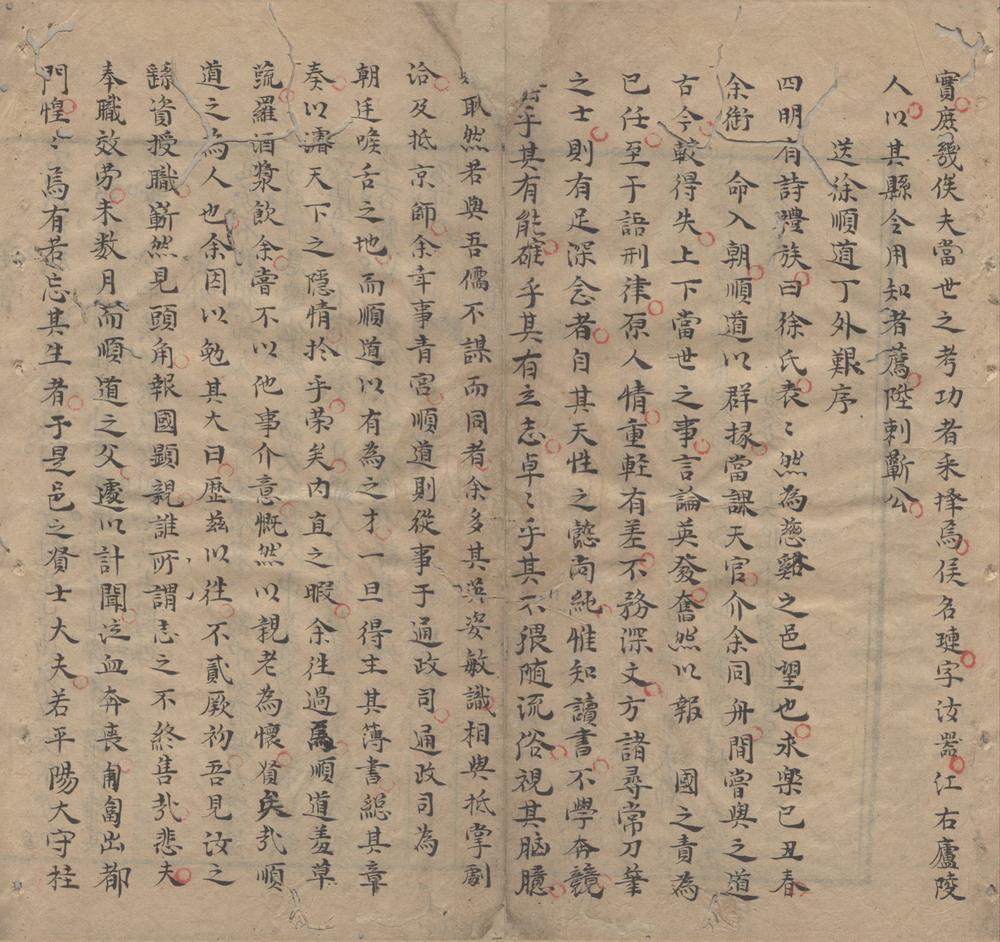 實庶幾俟夫當世之考功者采擇焉侯名璉字汝器江右廬陵
人以其縣令用知者薦陞刺蘄公
送徐順道丁外艱序
四明有詩禮族曰徐氏表〻然為慈谿之邑望也永樂己丑春
余銜　命入朝順道以群掾當課天官介余同舟間嘗與之道
古今較得失上下當世之事言論英發奮然以報　國之責為
已任至于語刑律原人情重輕有差不務深文方諸尋常刀筆
之士則有足深念者自其天性之懿尚純惟知讀書不學奔競
乎其有能確乎其有立志卓〻乎其不猥随流俗視其脑臆
耿然若與吾儒不謀而同者余多其英姿敏識相與抵掌劇
洽及抵京師余幸事青宮順道則從事于通政司通政司為
朝廷喉舌之地而順道以有為之才一旦得主其簿書緫其章
奏以濡天下之隱情扵乎荣矣内直之暇余徃過焉順道羞草
蔬羅酒漿飲余嘗不以他事介意慨然以親老為懷賢矣㢤順
道之為人也余因以勉其大曰歴兹以徃不貳厥初吾見汝之
繇資授職嶄然見頭角報國顕親誰所謂志之不終售㢤悲夫
奉職效劳未数月而順道之父遽以訃聞泣血奔喪匍匐出都
門惶〻焉有若忘其生者于是邑之賢士大夫若平陽大守桂